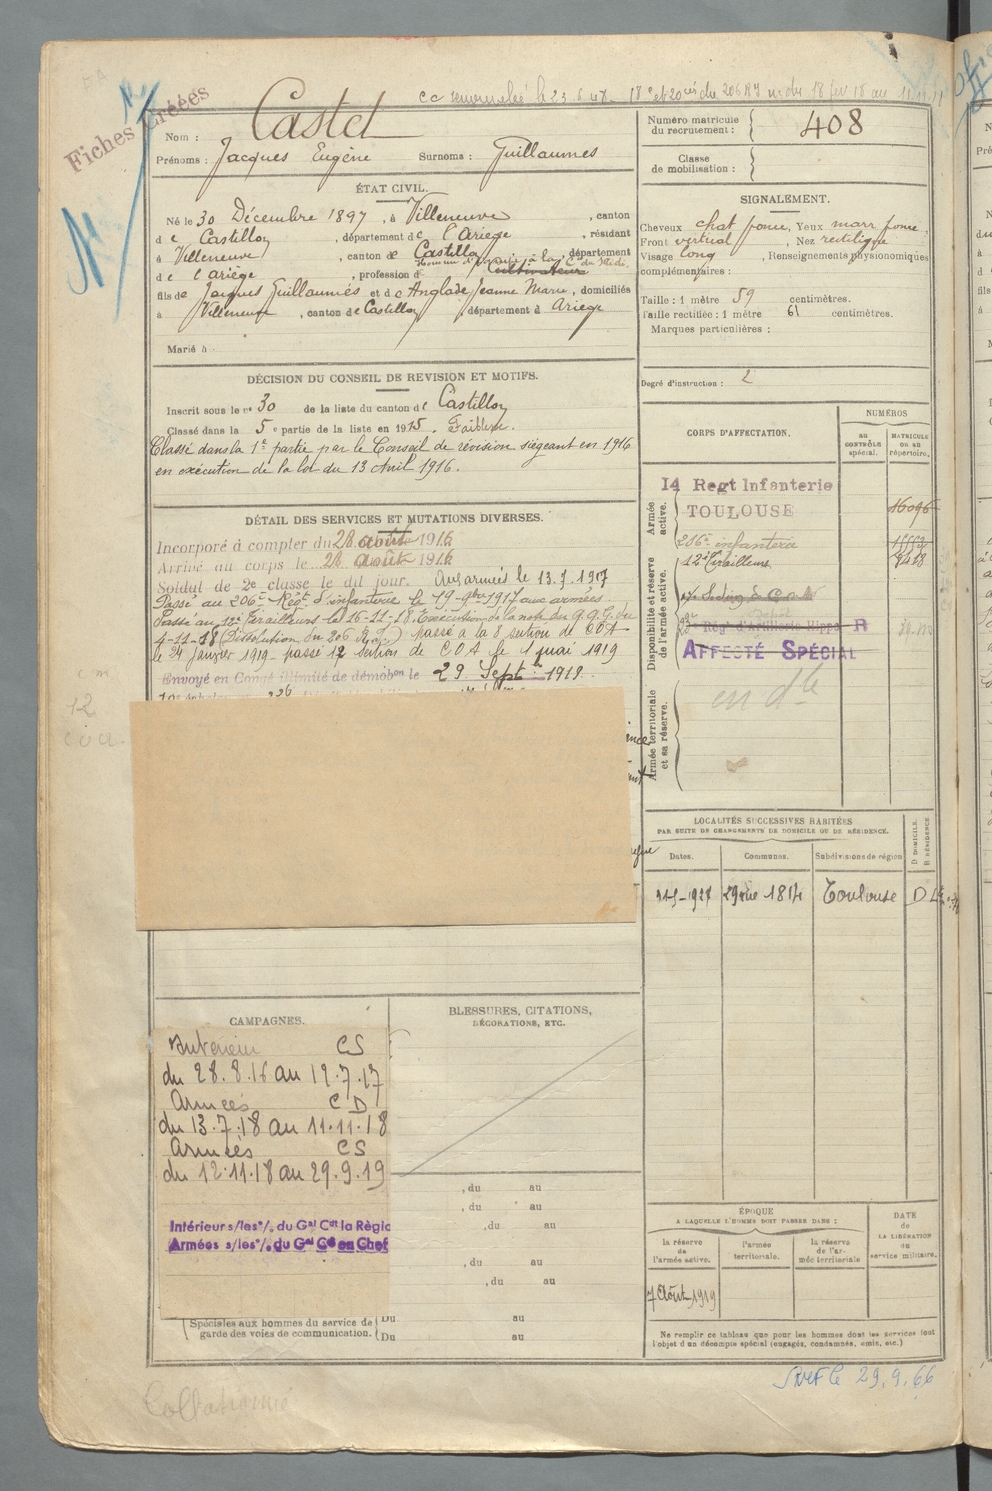 Fiches Créées
Nom : Castet
Prénoms : Jacques Eugène Surnoms : Guillaumes
Numéro matricule du recrutement : 408
Classe de mobilisation :
ÉTAT CIVIL.
Né le 30 Décembre 1897, à Villeneuve, canton
de Castillon, département de l'Ariège, résidant
à Villeneuve, canton de Castillon, département
de l'ariège, profession de Cultivateur
fils de Jacques Guillaumes et de Anglade Jeanne Marie, domiciliés
à Villeneuve, canton de Castillon, département d Ariège
Marié à
SIGNALEMENT.
Cheveux chat foncé, Yeux marr foncé,
Front vertical, Nez rectiligne
Visage long, Renseignements physionomiques
complémentaires :
Taille : 1 mètre 59 centimètres.
Taille rectifiée : 1 mètre 61 centimètres.
Marques particulières :
Degré d'instruction : 2
DÉCISION DU CONSEIL DE REVISION ET MOTIFS.
Inscrit sous le n° 30 de la liste du canton de Castillon
Classé dans la 5e partie de la liste en 1915. Faiblesse.
Classé dans la 1e partie par le Conseil de révision siégeant en 1916
en exécution de la loi du 13 Avril 1916.
DÉTAIL DES SERVICES ET MUTATIONS DIVERSES.
Incorporé à compter du 28 août 1916
Arrivé au corps le 28 août 1916
Soldat de 2e classe le dit jour. Aux armées le 13.7.1917
Passé au 206e Régt d'infanterie le 19-9bre 1917 aux armées.
Passé au 12e Tirailleurs le 16-11-18. Exécution de la note du G.Q.G. du
4-11-18 (Dissolution du 206 R.I.) passé à la 8 section de COA
le 24 Janvier 1919 - passé 12 section de COA le 1 mai 1919
Envoyé en Congé illimité de démobon le 29 Septbre 1919.
CORPS D'AFFECTATION.
NUMÉROS
AU CONTRÔLE spécial.
MATRICULE ou au répertoire.
Armée active.
14 Regt Infanterie
TOULOUSE
16096
206e infanterie
12e Tirailleurs
Disponibilité et réserve de l'armée active.
Régt d'Artillerie Hippo R
AFFECTÉ SPÉCIAL
Armée territoriale et sa réserve.
LOCALITÉS SUCCESSIVES HABITÉES
PAR SUITE DE CHANGEMENTS DE DOMICILE OU DE RÉSIDENCE.
Dates. Communes. Subdivisions de région D DOMICILE. R RÉSIDENCE
Toulouse D
CAMPAGNES.
Intérieur CS
du 28.8.16 au 12.7.17
Armées CD
du 13.7.18 au 11.11.18
Armées CS
du 12.11.18 au 29.9.19
Intérieur s/les °/. du Gal Cdt la Régio
Armées s/les °/. du Gal Cdt en Chef
BLESSURES, CITATIONS,
DÉCORATIONS, ETC.
, du au
, du au
, du au
, du au
, du au
Spéciales aux hommes du service de garde des voies de communication.
Du au
Du au
ÉPOQUE
A LAQUELLE L'HOMME DOIT PASSER DANS :
la réserve de l'armée active.
l'armée territoriale.
la réserve de l'armée territoriale
DATE de LA LIBÉRATION du service militaire.
7 Août 1919
Ne remplir ce tableau que pour les hommes dont les services font
l'objet d'un décompte spécial (engagés, condamnés, omis, etc.)
29.9.66